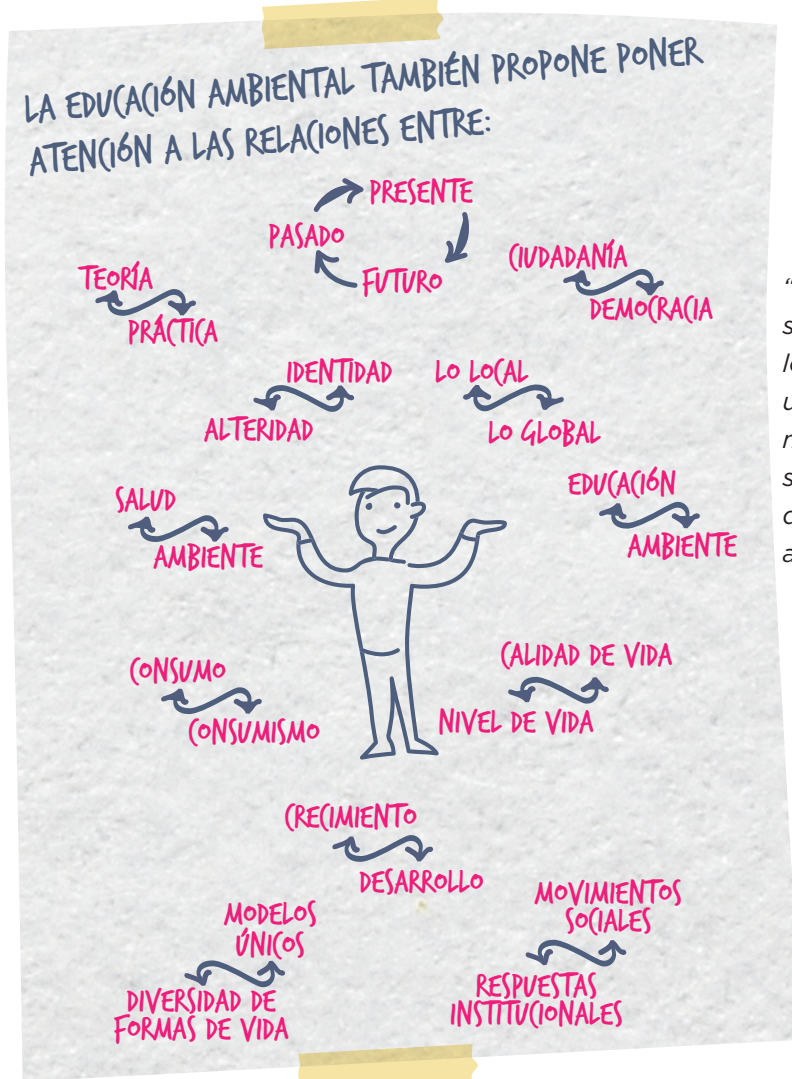 LA EDUCACIÓN AMBIENTAL TAMBIÉN PROPONE PONER
ATENCIÓN A LAS RELACIONES ENTRE:
PRESENTE
PASADO
FUTURO
TEORÍA
PRÁCTICA
CIUDADANÍA
DEMOCRACIA
IDENTIDAD
ALTERIDAD
LO LOCAL
LO GLOBAL
SALUD
AMBIENTE
EDUCACIÓN
AMBIENTE
CONSUMO
CONSUMISMO
CALIDAD DE VIDA
NIVEL DE VIDA
CRECIMIENTO
DESARROLLO
MODELOS
ÚNICOS
DIVERSIDAD DE
FORMAS DE VIDA
MOVIMIENTOS
SOCIALES
RESPUESTAS
INSTITUCIONALES